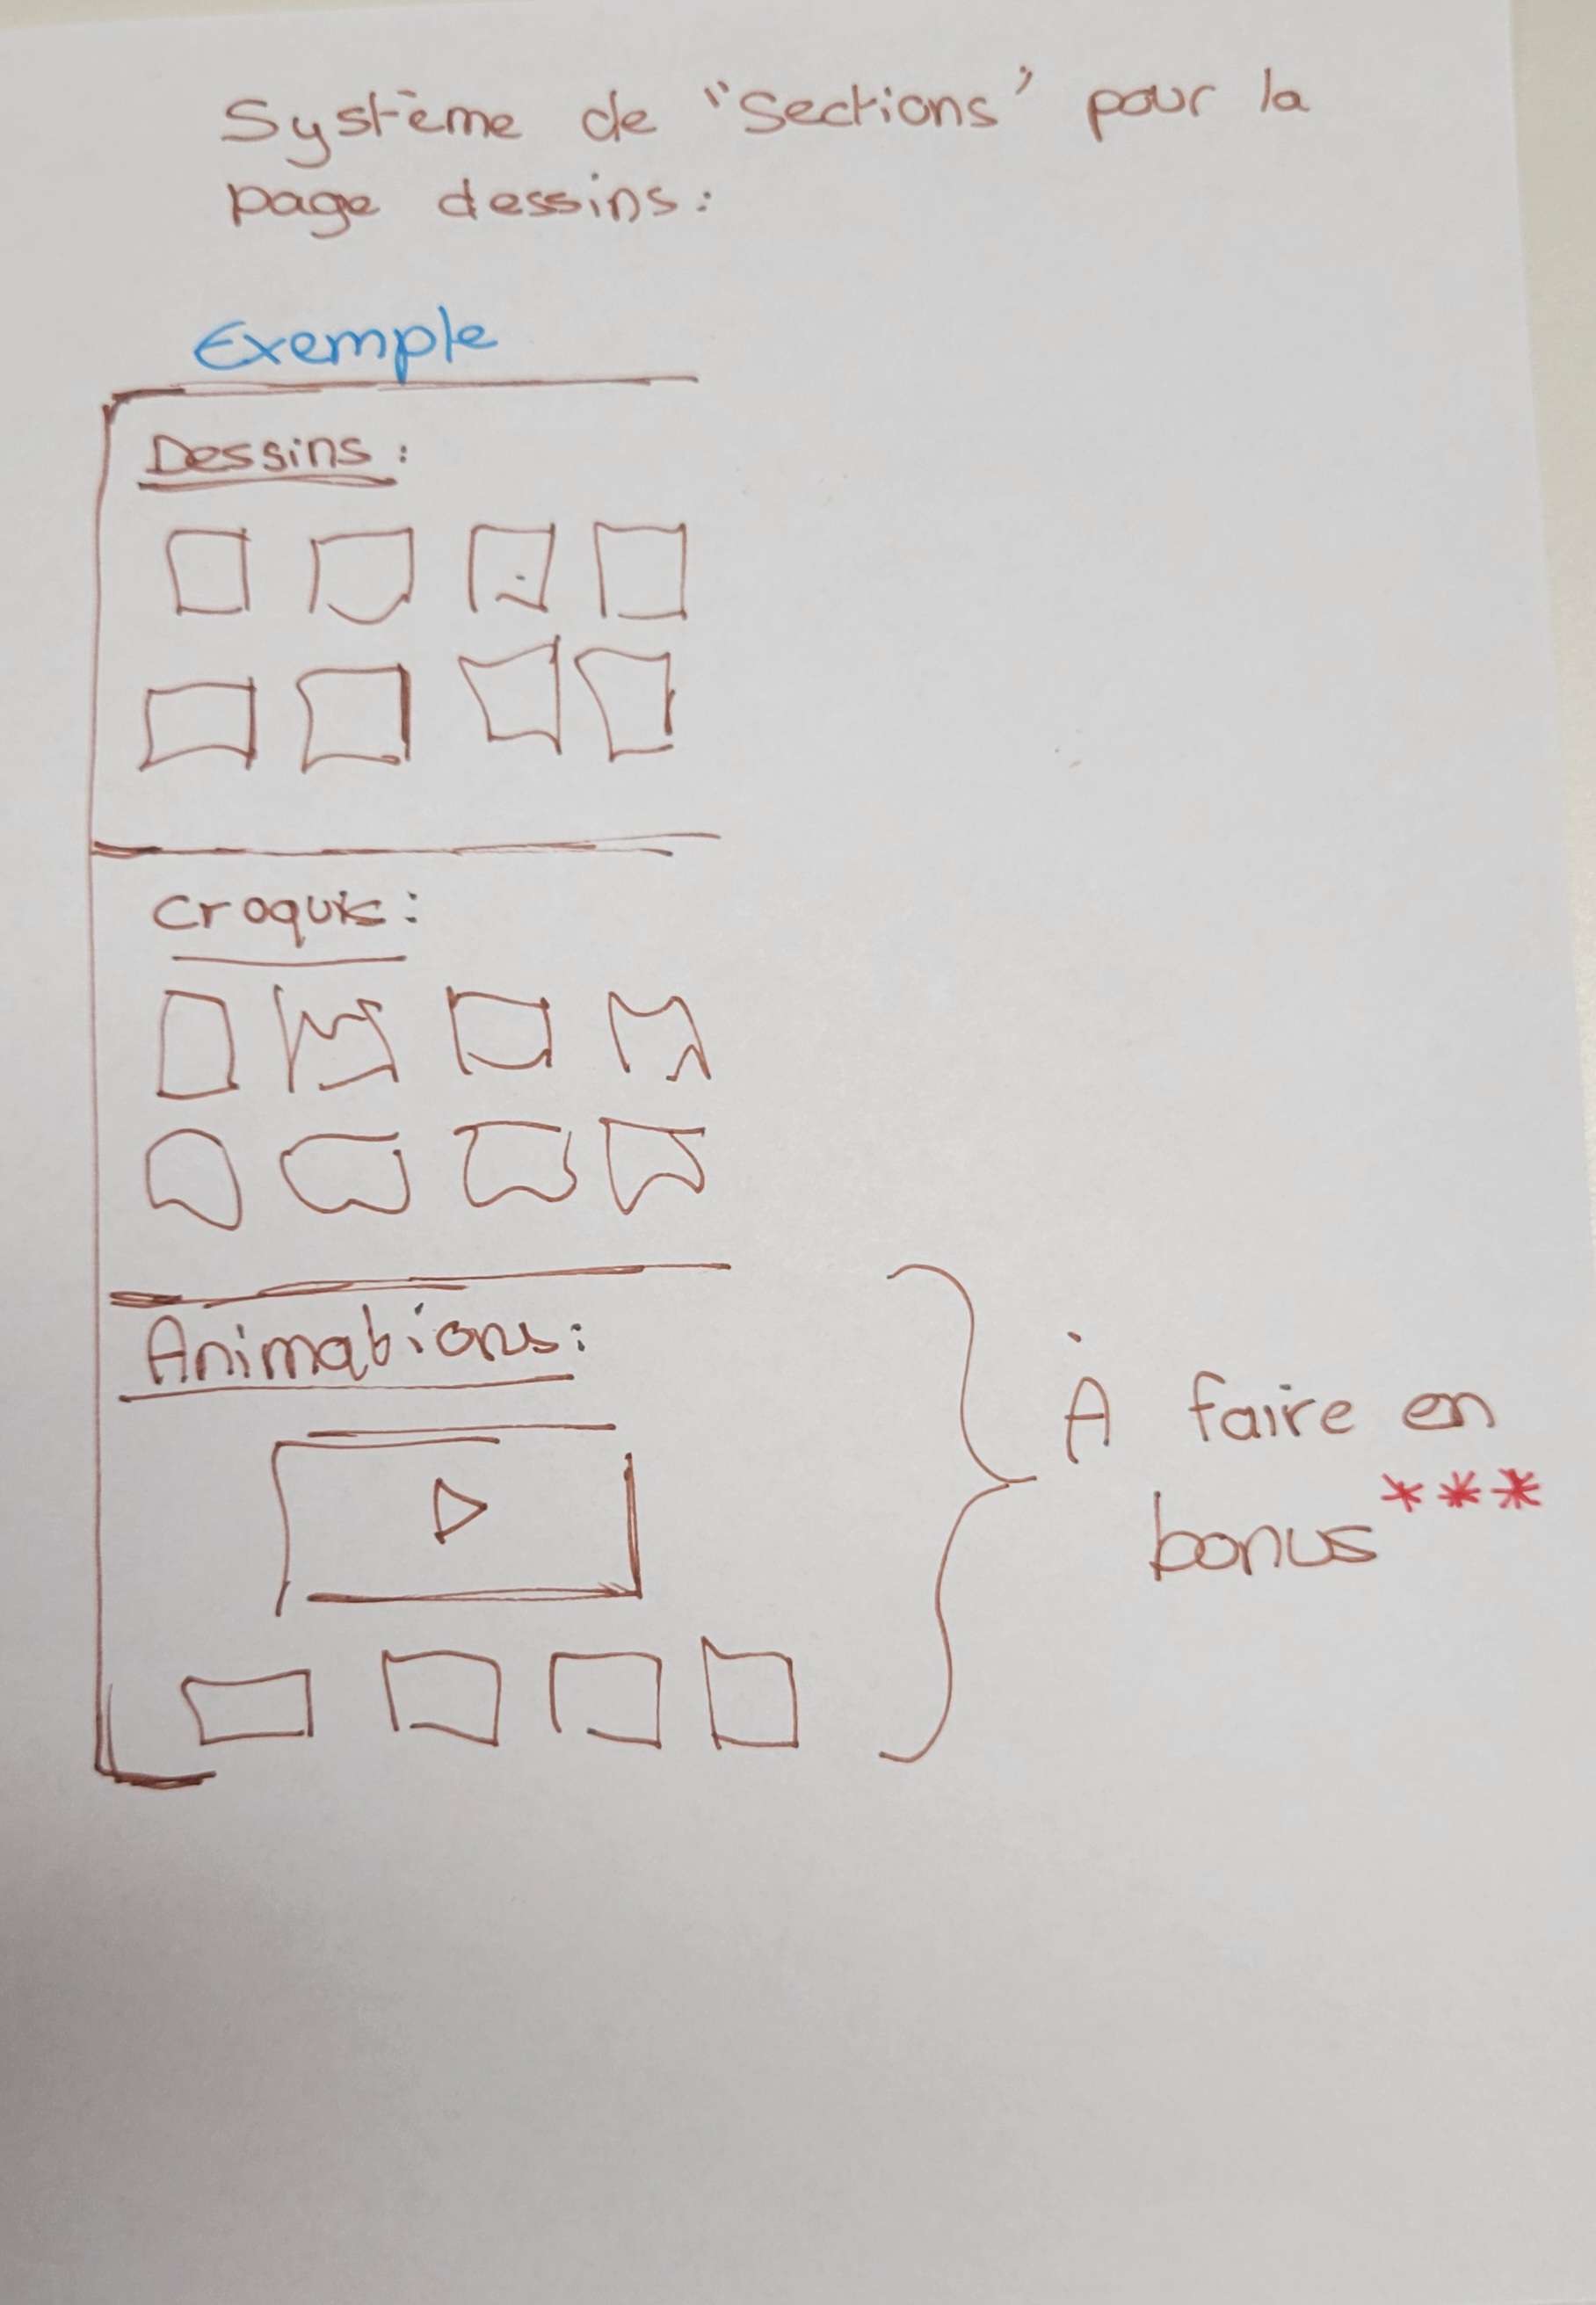 Système de "Sections" pour la
page dessins:
Exemple
Dessins:
Croquis:
Animations:
À faire en
bonus***